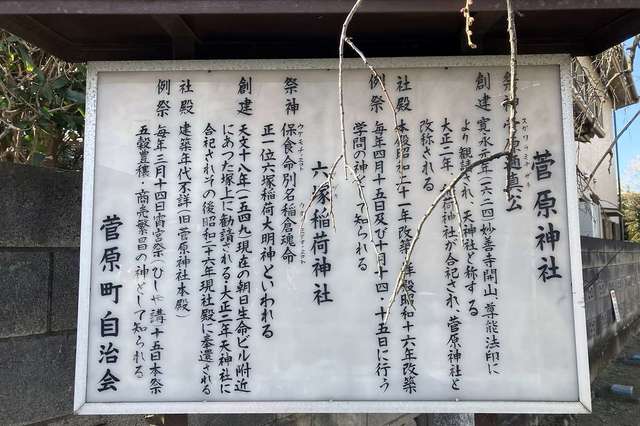 菅原神社
スガワラミチザネ
祭神 菅原道真公
創建 寛永元年(一六二四)妙善寺開山、尊能法印に
より観請され、天神社と称する
大正二年、神社が合祀され、菅原神社と
改称される
社殿 本殿昭和二十一年改築 拝殿昭和十六年改築
例祭 毎年四月十五日及び十月十四、十五日に行う
学問の神として知られる
六塚稲荷神社
祭神 保食命別名稲倉魂命
ウケモチノミコト
正一位六塚稲荷大明神といわれる
創建 天文十八年(一五四九)現在の朝日生命ビル附近
にあつた塚上に勧請される・大正二年天神社に
合祀されその後昭和二十六年現社殿に奉遷される
社殿 建築年代不詳(旧菅原神社本殿)
例祭 毎年三月十四日宵宮祭(びしゃ講)十五日本祭
五穀豊穣・商売繁昌の神として知られる
菅原町自治会